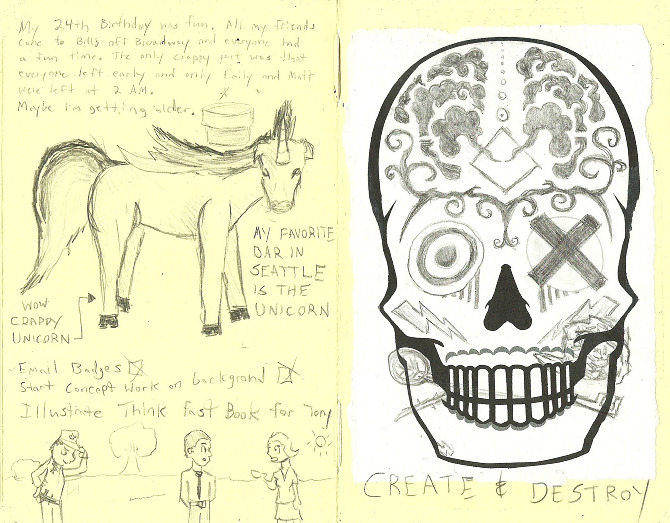 My 24th Birthday was fun. All my friends
came to Bills off Broadway and everyone had
a fun time. The only crappy part was that
everyone left early and only Emily and Matt
were left at 2 AM.
Maybe I'm getting older.
MY FAVORITE
BAR IN
SEATTLE
IS THE
UNICORN
WOW
CRAPPY
UNICORN
- Email Badges
Start Concept Work on background
Illustrate Think Fast Book for Tony
CREATE & DESTROY